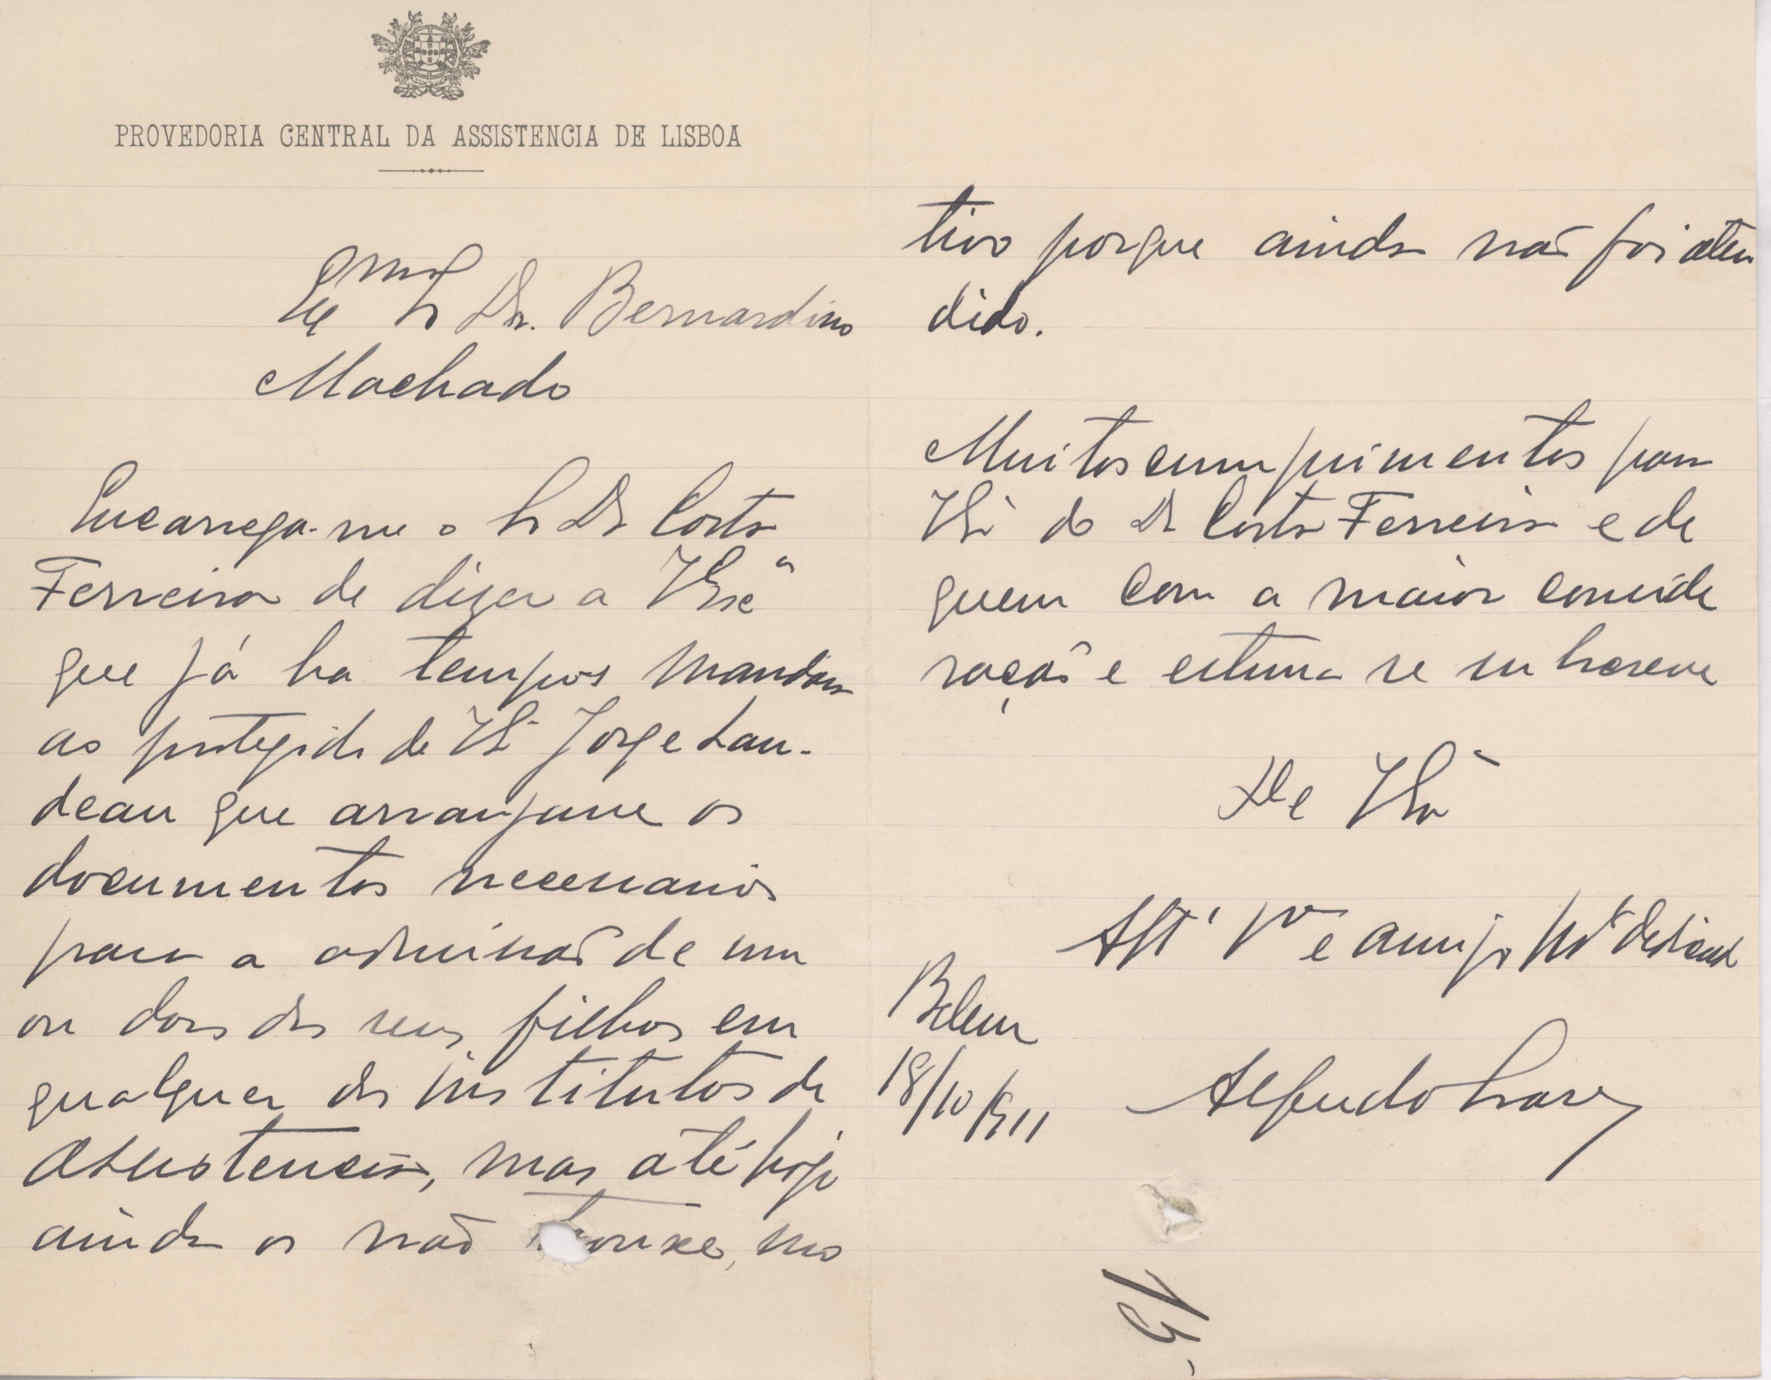 PROVEDORIA CENTRAL DA ASSISTENCIA DE LISBOA
Exmo Sr Dr. Bernardino
Machado
Encarrega-me o Sr Dr Costa
Ferreira de dizer a V Exª
que já ha tempos mandou
ao protegido de V Exª Jorge Lau-
deau que arranjasse os
documentos necessarios
para a admissão de um
ou dois dos seus filhos em
qualquer dos institutos da
Assistencia, mas até hoje
ainda os não trouxe, mo
tivo porque ainda não foi aten
dido.
Muitos cumprimentos para
V Exª do Dr Costa Ferreira e de
quem com a maior conside
ração e estima se subscreve
De V Exª
Attº Vor e amigo Mto dedicado
Belem
18/10/911
Alfredo Soares
15